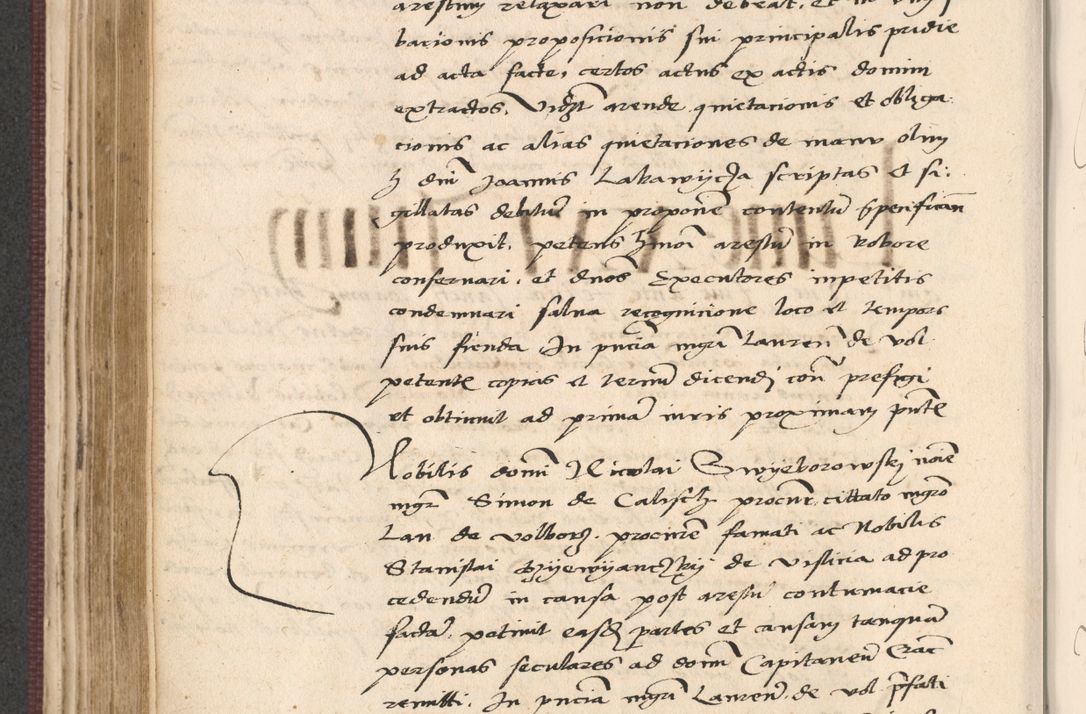 arestum relaxari non debeat, et in
bacionis proposicionis sui principalis pridie
ad acta facte, certos actus ex actis domini
extractos, videlt arende quietacionis et obliga
cionis ac alias quietaciones de manu olim
dni Joannis Lakawijcza scriptas et si
gillatas debitum in propone contentum specifican
produxit, petens hmoi arestum in robore
conservari, et dnos Executores inpetitis
condemnari salva recognicione loco et tempore
suis fienda In pncia mgri Lauren de vol
petente copias et termin dicendj con prefigi
et obtinuit ad primam iuris proximam pnte
Nobilis domni Nicolai Swyeborowskj noie
mgr Simon de Calisch procur, cittato mgro
Lau de volborz procure famati ac Nobilis
Stanislai de Vislicia ad pro
cedendum in causa post arestum contumacie
factam, petiuit easd partes et causam tanquam
personas seculares ad domn Capitaneum Crac
remitti, In pncia mgri Lauren de vol prefati